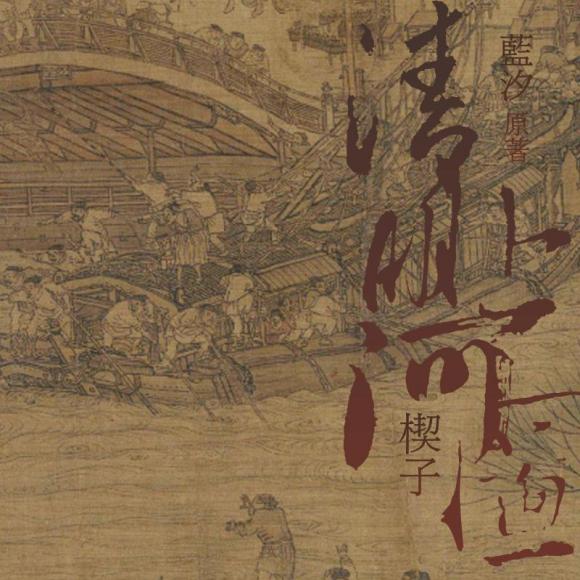 藍汐 原著
清明上河圖
楔子